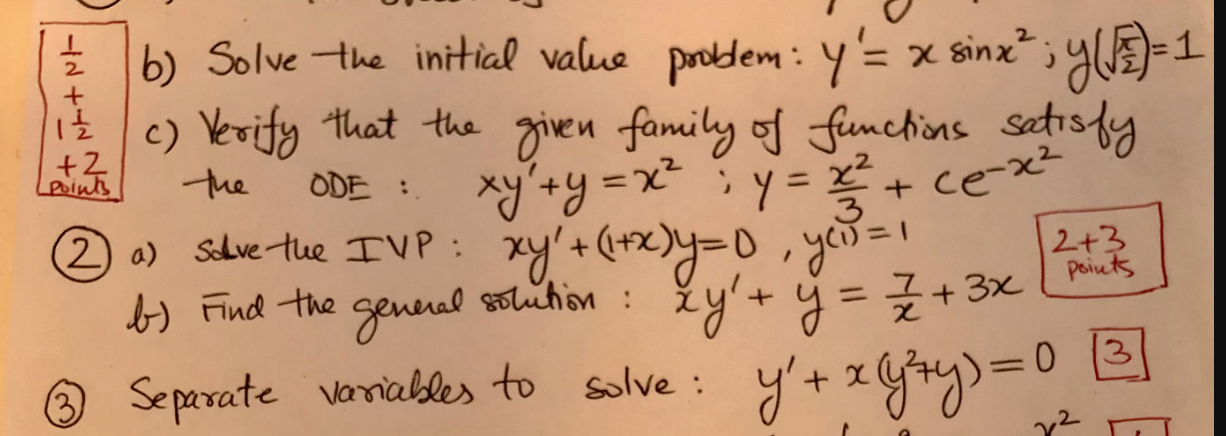 b) Solve the initial value problem: y' = x sinx²; y(√(π/2)) = 1
1/2 + 1 1/2 + 2 points
c) Verify that the given family of functions satisfy
the ODE: xy' + y = x² ; y = x²/3 + ce^(-x²)
② a) Solve the IVP: xy' + (1+x)y = 0, y(1) = 1
2+3 points
b) Find the general solution: xy' + y = 7/x + 3x
③ Separate variables to solve: y' + x(y²+y) = 0 [3]
x²